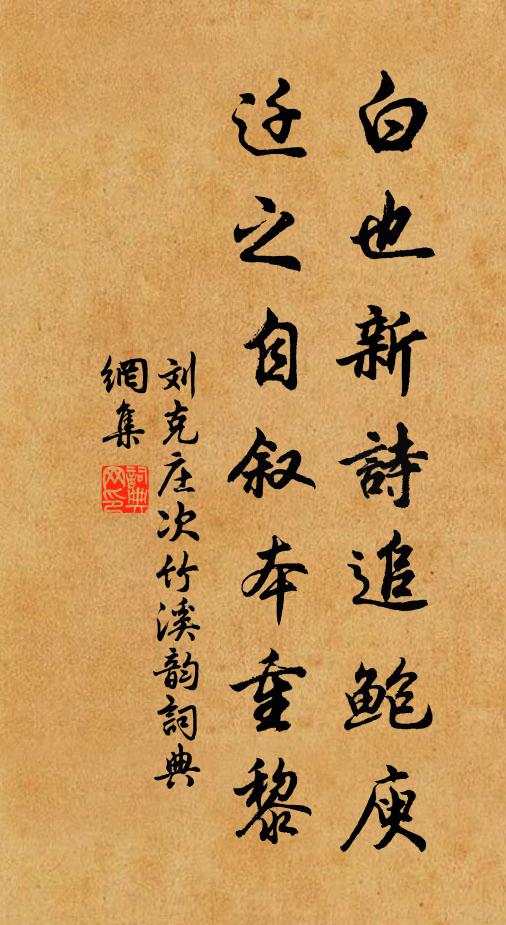 白也新詩追鮑庾
迁之自叙本重黎
刘克庄次竹溪韵詞典
網集
詞典
网印